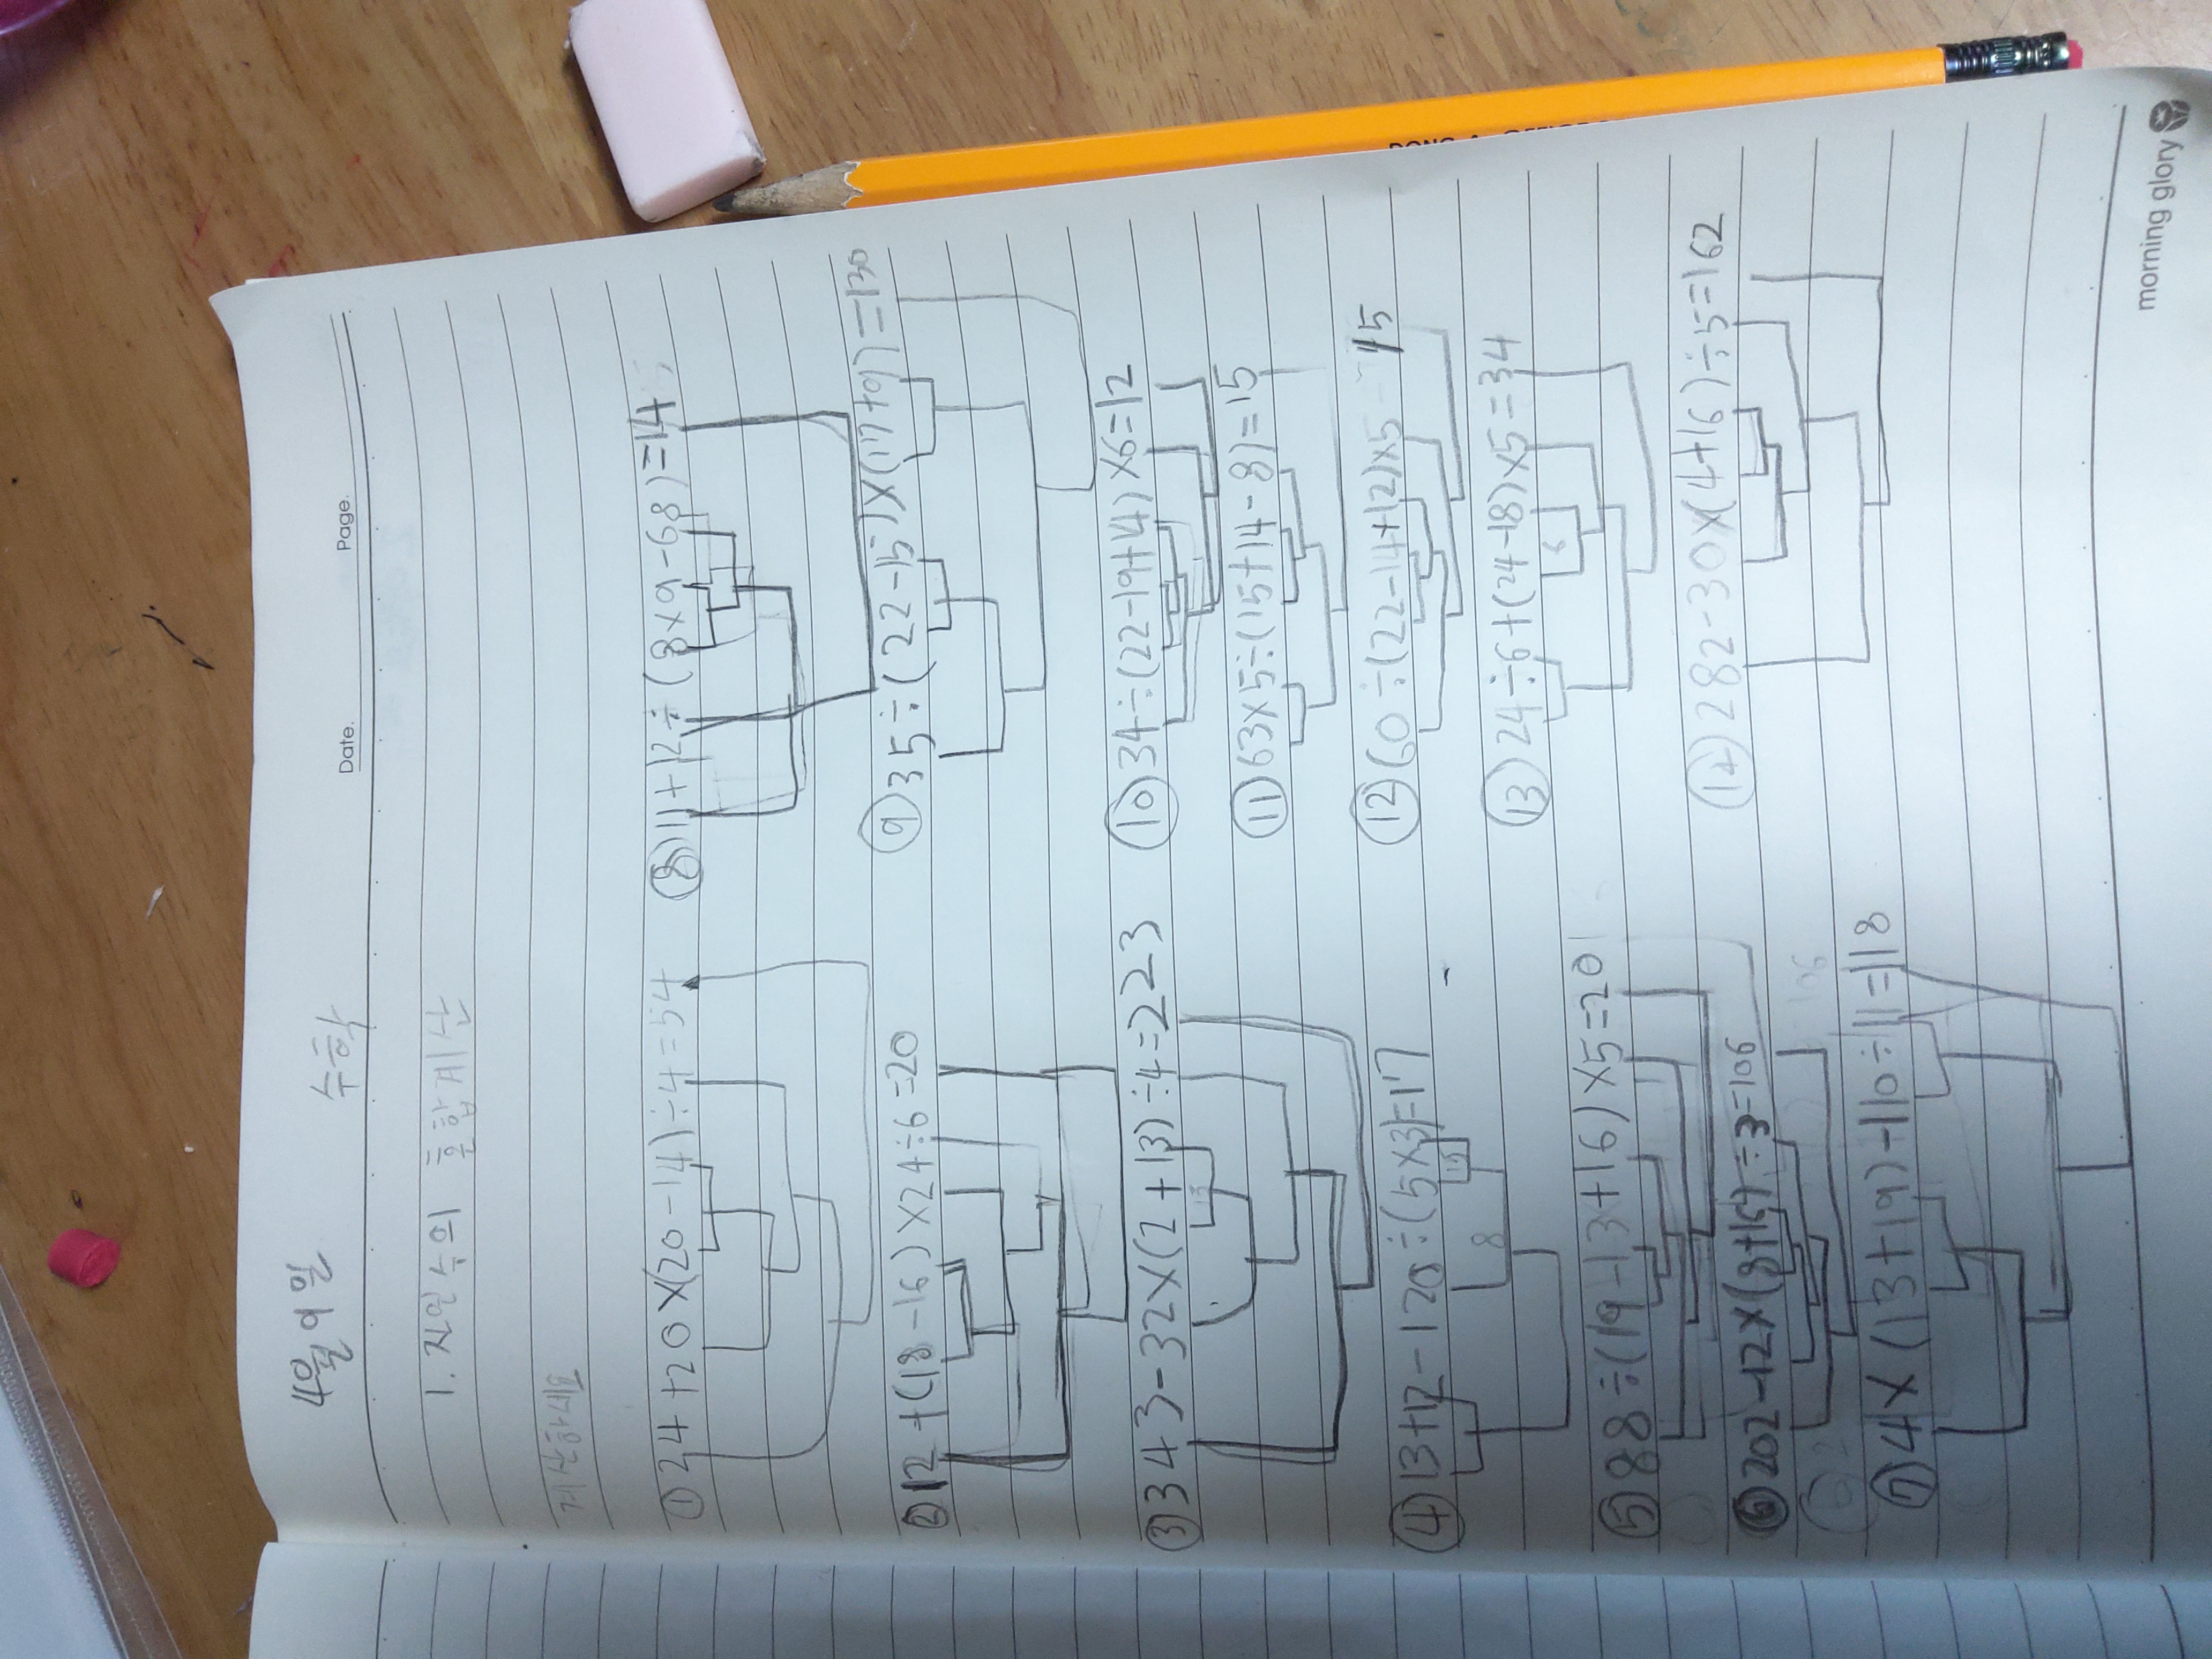 4월 9일
수학
Date.
Page.
1. 자연수의 혼합계산
계산하세요
① 24+20×(20-14)÷4=54
② 12+(18-16)×24÷6=20
③ 343-32×(2+13)÷4=223
15
④ 13+12-120÷(5×3)=17
15
8
⑤ 88÷(19-13+16)×5=20
⑥ 202-12×(8+16)÷3=106
106
⑦ 4×(13+19)-110÷11=118
⑧ 11+12÷(8×9-68)=14
⑨ 35÷(22-15)×(17+9)=130
⑩ 34÷(22-19+14)×6=12
⑪ 63×5÷(15+14-8)=15
⑫ 60÷(22-14+12)×5 15
⑬ 24÷6+(24-18)×5=34
6
⑭ 282-30×(4+16)÷5=162
morning glory